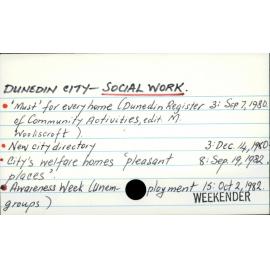 DUNEDIN CITY — SOCIAL WORK.
• 'Must' for every home (Dunedin Register 3: Sep 7, 1980.
of Community Activities, edit. M.
Wooliscroft).
• New city directory 3: Dec. 14, 1980.
• City's welfare homes 'pleasant 8: Sep. 19, 1982.
places'.
• Awareness Week (Unemployment 15: Oct 2, 1982.
groups) WEEKENDER